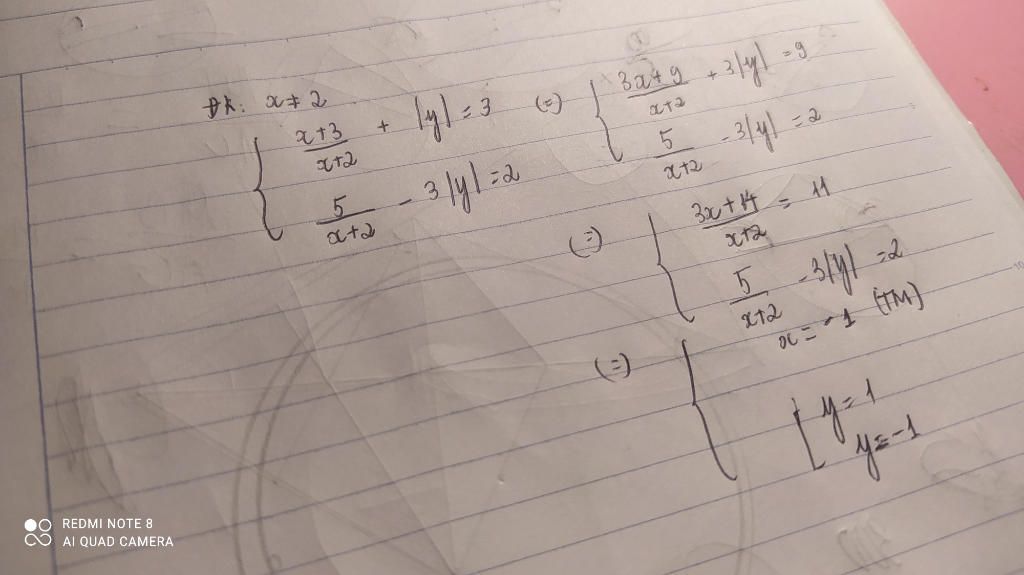 ĐK: x ≠ 2
{ (x+3)/(x+2) + |y| = 3 (=) { (3x+9)/(x+2) + 3|y| = 9
5/(x+2) - 3|y| = 2 5/(x+2) - 3|y| = 2
(=) { (3x+14)/(x+2) = 11
5/(x+2) - 3|y| = 2
(=) { x = -1 (TM)
[ y = 1
y = -1
REDMI NOTE 8
AI QUAD CAMERA